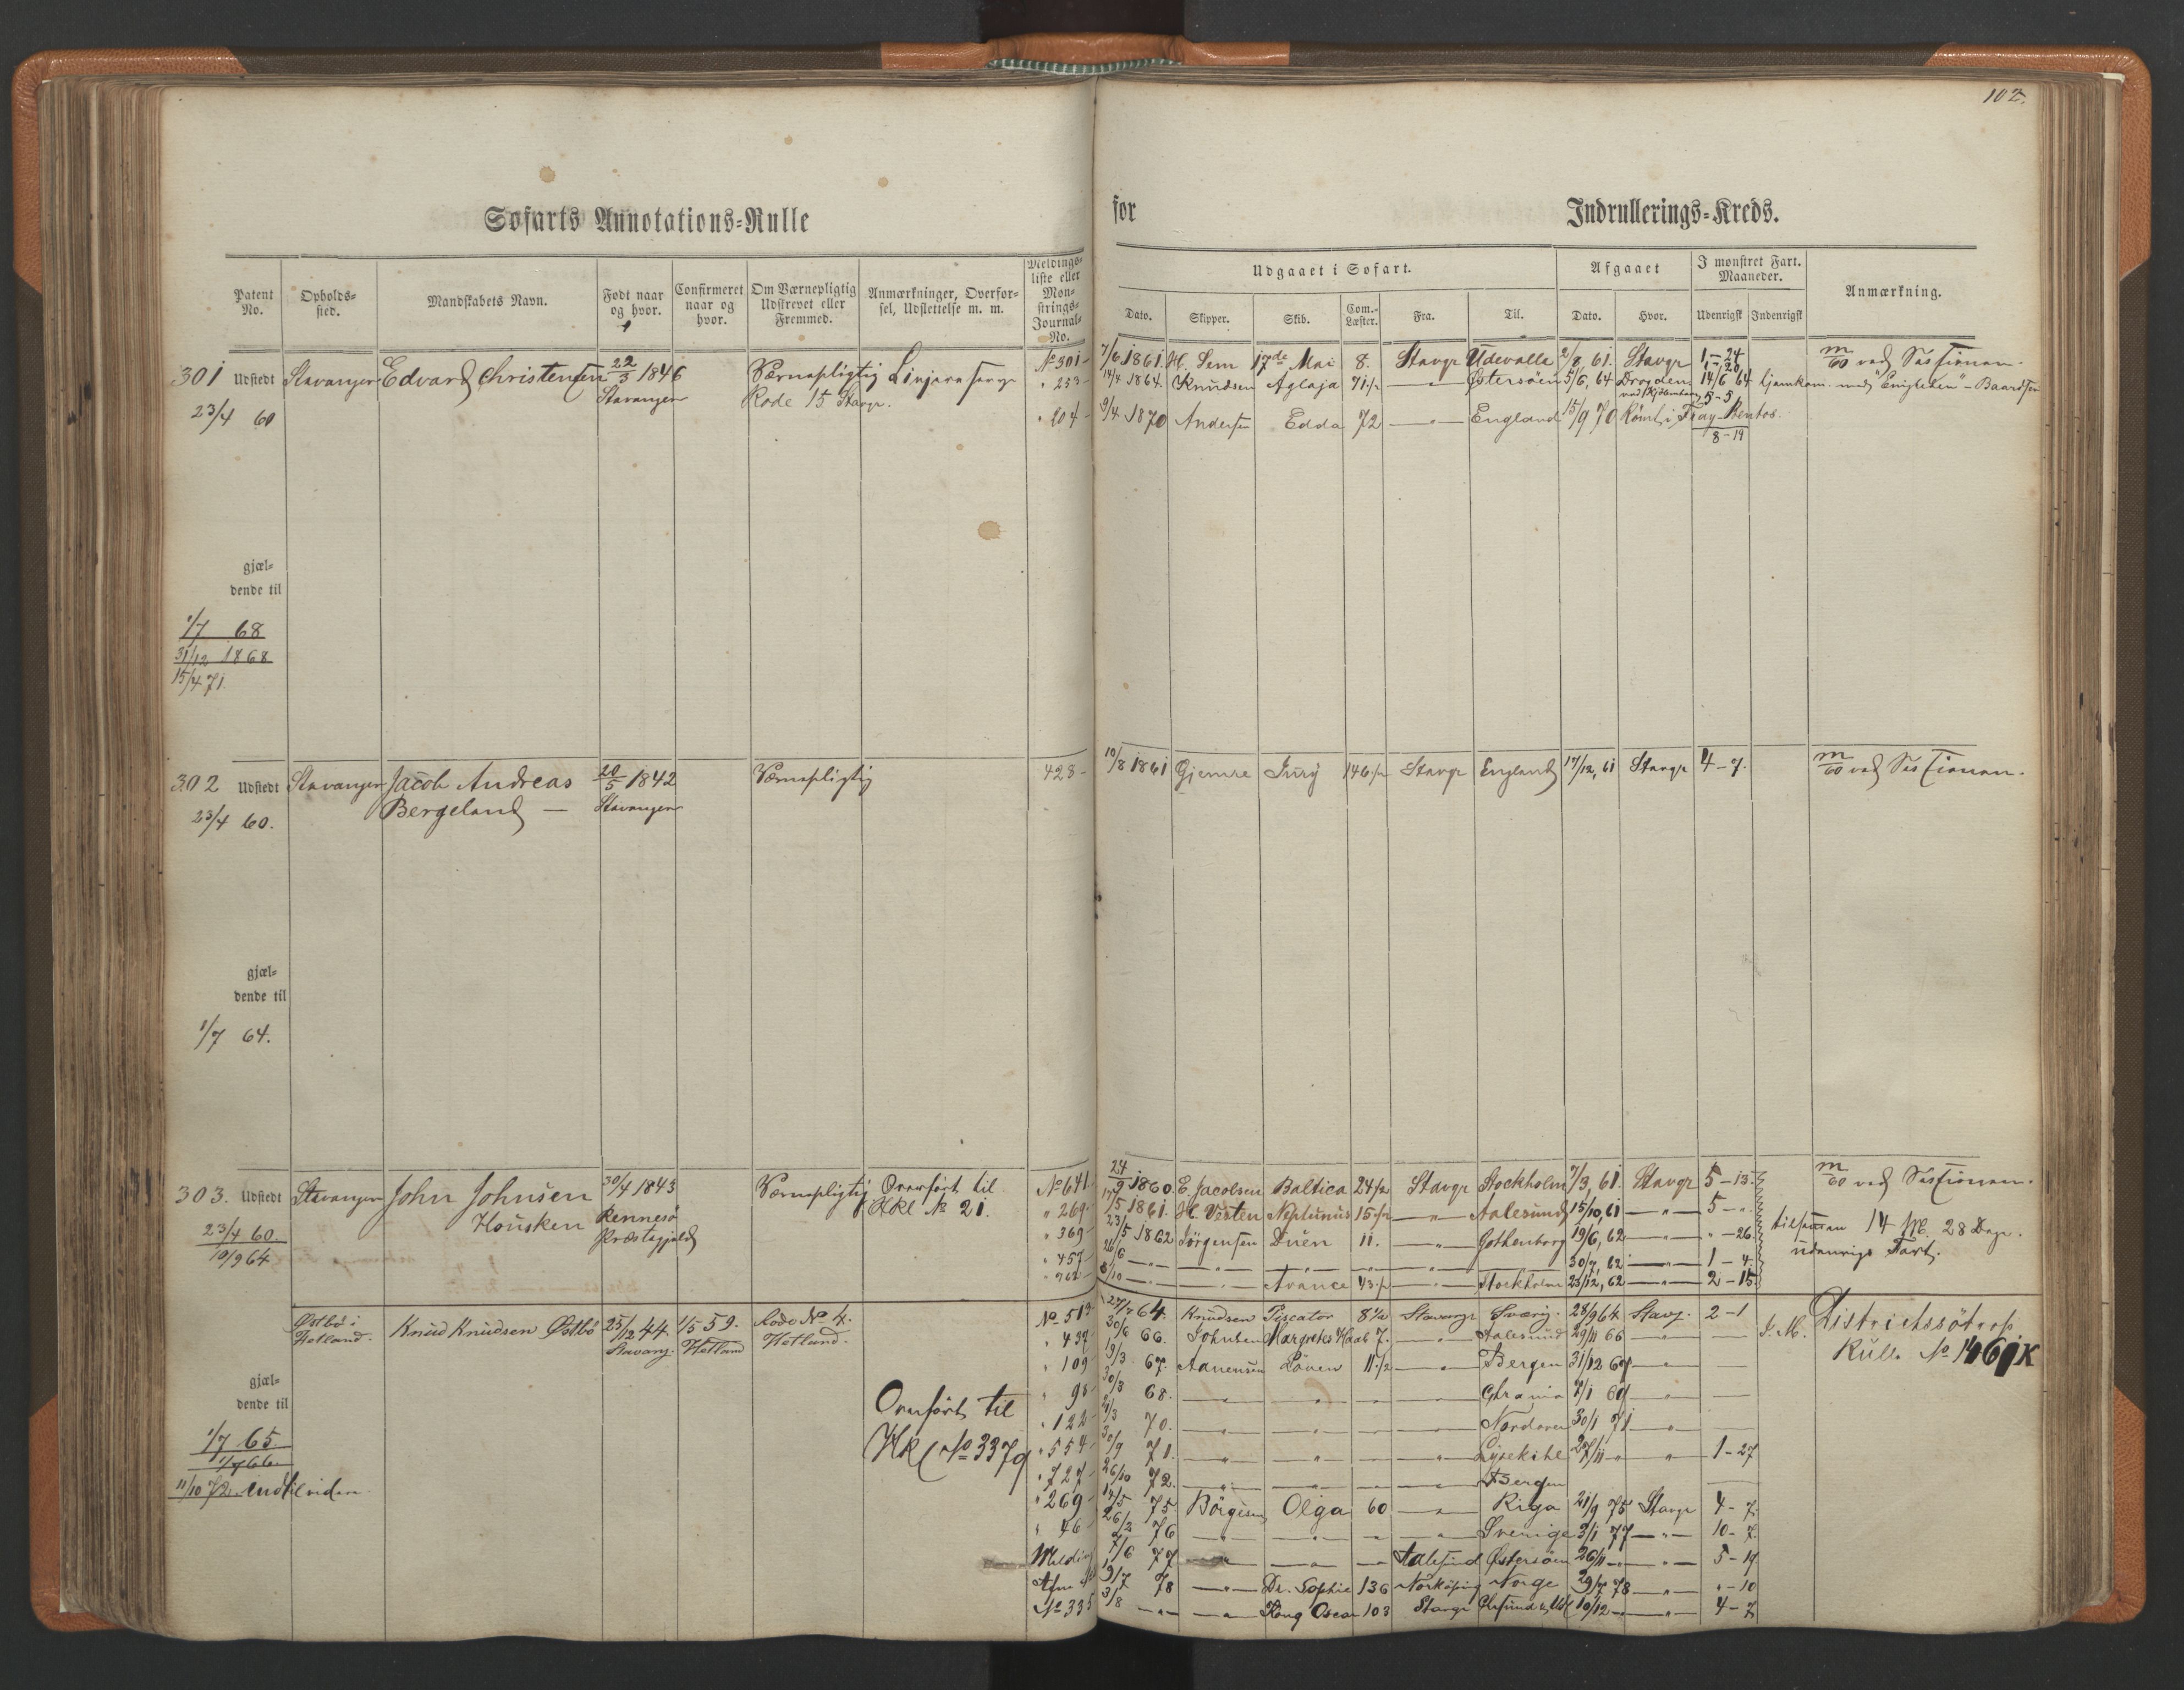 102.
Søfarts Annotations-Rulle for Indrullerings-Kreds.
Patent No.
Opholds-sted.
Mandskabets Navn.
Født naar og hvor.
Confirmeret naar og hvor.
Om Værnepligtig Udskrevet eller Fremmed.
Anmærkninger, Overfør-sel, Udslettelse m. m.
Meldings-liste eller Møn-strings-Journal-No.
Udgaaet i Søfart.
Dato. Skipper. Skib. Com.-Læster. Fra. Til.
Afgaaet
Dato. Hvor.
I mønstret Fart. Maaneder.
Udenrigsk Indenrigsk
Anmærkning.
301 Udstedt Stavanger Edvard Christensen 22/3 1846 Værnepligtig
Stavanger Rode 15 Stavgr.
23/4 60
No 301 7/6 1861. H. Sem 17de Mai 8. Stavgr Udevalla 2/8, 61. Stavgr 1-24
" 233 14/4 1864. Knudsen Aglaja 71 1/2 — " — Østersöen 5/6, 64 Dragden 14/6 64 hjemkom. med "Enigheden" - Baardsen
" 204 9/4 1870 Andersen Edda 72 — " — England 15/9 70 Rømt i Fray Bentos.
8-19
gjæl-
dende til
1/7 68
31/12 1868
15/4 71.
302 Udstedt Stavanger Jacob Andreas 20/5 1842 Værnepligtig
Bergeland — Stavanger
23/4 60.
428 10/8 1861 Gjemre Jury 146 1/2 Stavgr England 17/12, 61 Stavgr 4-7.
gjæl-
dende til
1/7 64.
303. Udstedt Stavanger John Johnsen 30/4 1843 Værnepligtig Overført til
Housken Rennesö Præstegjeld HKl No 21.
23/4 60
10/9 64
No 641 24/9 1860. E. Jacobsen Baltica 24 1/2 Stavgr Stockholm 7/3, 61. Stavgr 5-13
" 269 17/5 1861. H. Visten Neptunus 15 1/2 — " — Aalesund 15/10, 61 — " — 5-"
" 369 23/5 1862 Jörgensen Duen 11. — " — Gothenborg 19/6, 62 — " — "-26
" 457 26/6 — " — — " — — " — — " — — " — 30/7, 62 — " — 1-4
8/10 — " — — " — Avance 43 1/2 — " — Stockholm 23/12, 62 — " — 2-15
tilsammen 14 M. 28 Dage.
udenrigs Fart.
Østbö i Hetland. Knud Knudsen Østbö 25/12 44. Stavang. 1/5 59. Hetland Rode No 4. Hetland.
gjæl-
dende til
1/7 65
1/7 66
11/10 72. indtil viden
Overført til
HKl No 3379
No 519 27/7 64. Knudsen Piscator 8 1/2 Stavangr Sverig. 28/9 64. Stavg. 2-1
" 437 30/6 66. Johnsen Margrethes Haab 7. — " — Aalesund 29/11 66 — " —
" 109 19/3 67. Aanensen Löven 11 1/2 — " — Bergen 31/12 67 — " —
" 98 30/3 68. — " — — " — — " — Chrania 2/1 69 — " —
" 122 2/3 70. — " — — " — — " — Nordover 30/1 71 "
" 554 30/9 71. — " — — " — — " — Lysekihl 27/11 " " 1-27
" 727 26/10 72. — " — — " — — " — Bergen
" 269 14/5 75. Börgesen Olga 60 — " — Riga 21/9 75 Stavgr 4-7.
" 46 26/2 76 — " — — " — — " — Sverige 3/1 77 — " — 10-7.
7/6 77 — " — — " — Aalesund Østersöen 26/11 — " — " — 5-19
19/7 78 — " — Dr. Sophie 136 Norköping Norge 29/7 78 — " — "-10
No 335 3/8 — " — — " — Kong Oscar 103 Stavgr 10/12 — " — " — 4-7